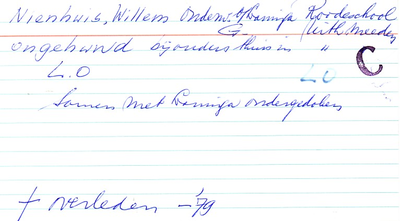 Nienhuis, Willem Onderw. b/Daminga Roodeschool
G. (Uithmeeden
ongehuwd bijouders thuis in "
L.O LO C
Samen met Daminga ondergedoken
† overleden - '79